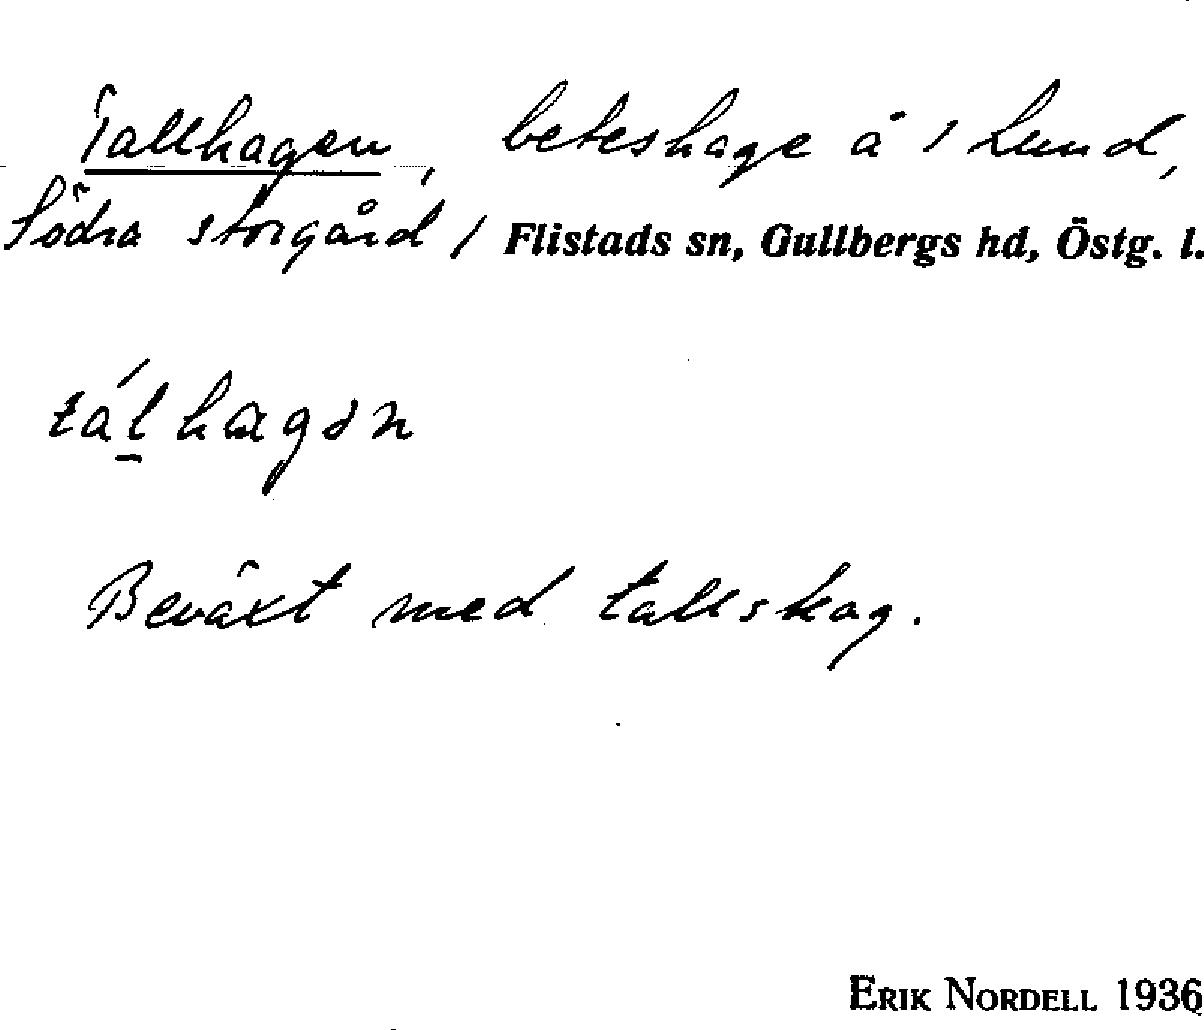 Tallhagen, beteshage å / Lund,
Södra storgård / Flistads sn, Gullbergs hd, Östg. l.
tál̠hagən
Beväxt med tallskog.
ERIK NORDELL 1936